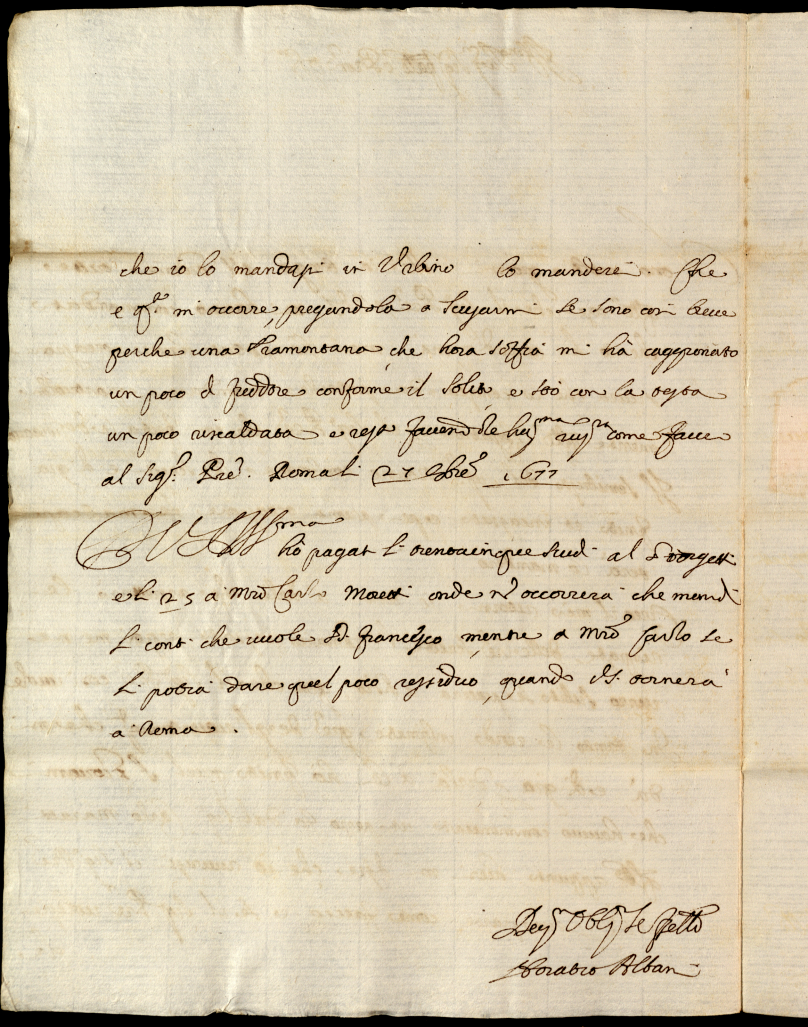 che io lo mandassi in Urbino lo manderei. Che
e q.to mi occorre, pregandola a scusarmi se sono così breve
perche una Tramontana, che hora soffia mi hà caggionato
un poco di freddore conforme il solito, e stò con la testa
un poco riscaldata e resto facendole hum.ma riv.za come faccio
al Sig.r Pre. Roma li 27 9bre 1677
V S Ill.ma
hò pagati li trentacinque scudi al Borgetti
e li 25 à Mro Carlo Moretti onde nō occorrerà che mandi
li conti che vuole D. Francesco mentre a Mro Carlo se
li potrà dare quel poco ressiduo, quando V.S. tornerà
à Roma.
Dev. Obl. Se
Horatio Albani